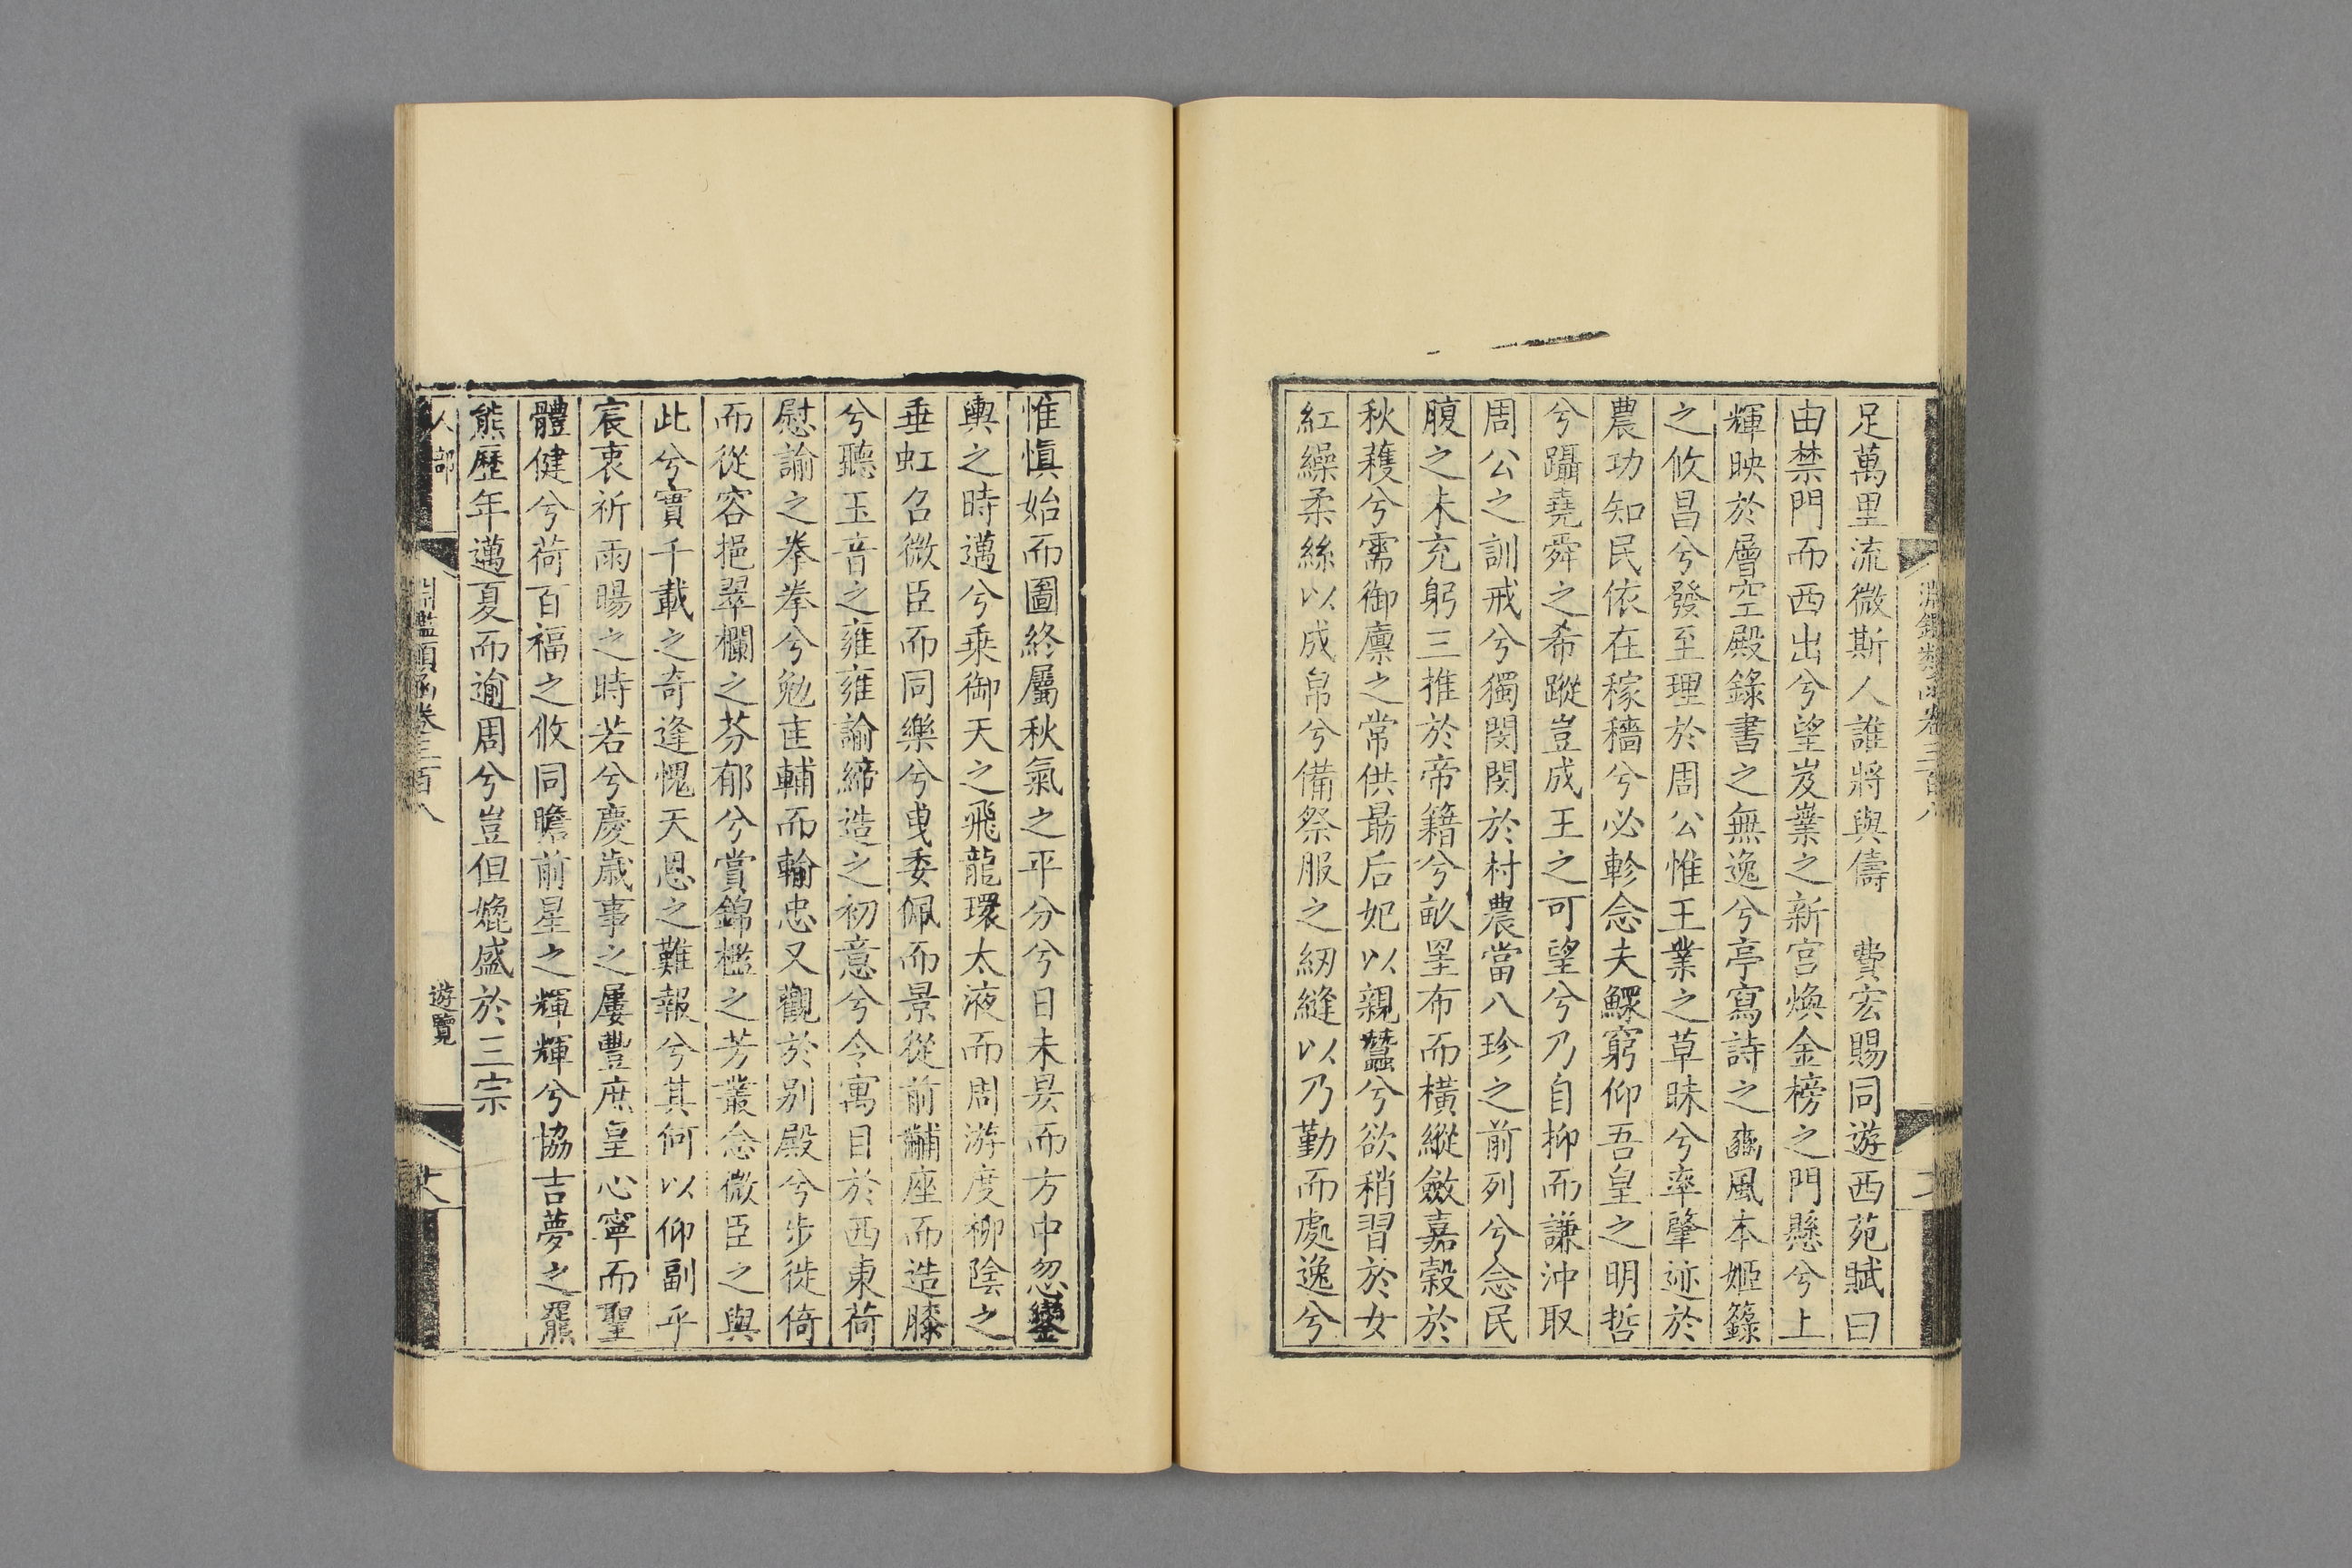 足萬里流微斯人誰將與儔　費宏賜同遊西苑賦曰
由禁門而西出兮望岌業之新宫煥金榜之門懸兮上
輝映於層空殿錄書之無逸兮亭寫詩之豳風本姬籙
之攸昌兮發至理於周公惟王業之草昧兮率肇迹於
農功知民依在稼穡兮必軫念夫鰥窮仰吾皇之明哲
兮躡堯舜之希蹤豈成王之可望兮乃自抑而謙沖取
周公之訓戒兮獨閔閔於村農當八珍之前列兮念民
腹之未充躬三推於帝籍兮畝畺布而橫縱斂嘉穀於
秋穫兮需御廪之常供最后妃以親蠶兮欲稍習於女
紅繰柔絲以成帛兮備祭服之紉縫以乃勤而處逸兮
惟愼始而圖終屬秋氣之平分兮日未昃而方中忽鑾
輿之時邁兮乗御天之飛龍環太液而周游度柳陰之
垂虹召微臣而同樂兮曳委佩而景從前黼座而造膝
兮聽玉音之雍雍諭締造之初意兮令寓目於西東荷
慰諭之拳拳兮勉匡輔而輸忠又觀於别殿兮步徙倚
而從容挹翠欄之芬郁兮賞錦檻之芳叢念微臣之與
此兮實千載之奇逢愧天恩之難報兮其何以仰副乎
宸衷祈雨暘之時若兮慶歲事之屢豐庶皇心寧而聖
體健兮荷百福之攸同瞻前星之輝輝兮協吉夢之羆
熊歷年邁夏而逾周兮豈但媲盛於三宗
人部
淵鑑類函卷三百八
遊覽